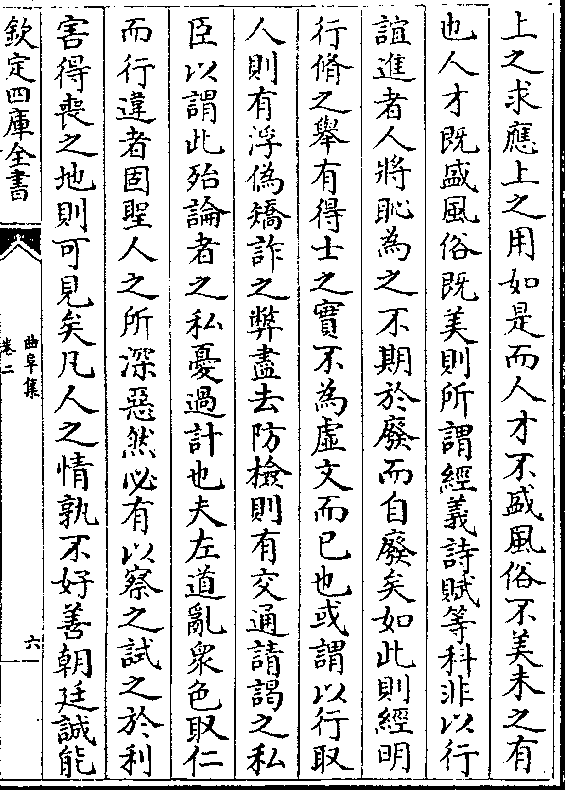 上之求應上之用如是而人才不盛風俗不美未之有
也人才既盛風俗既美則所謂經義詩賦等科非以行
誼進者人將恥為之不期於廢而自廢矣如此則經明
行脩之舉有得士之實不為虛文而已也或謂以行取
人則有浮偽矯詐之弊盡去防檢則有交通請謁之私
臣以謂此殆論者之私憂過計也夫左道亂衆色取仁
而行違者固聖人之所深惡然必有以察之試之於利
害得喪之地則可見矣凡人之情孰不好善朝廷誠能
欽定四庫全書
曲阜集
卷二
六